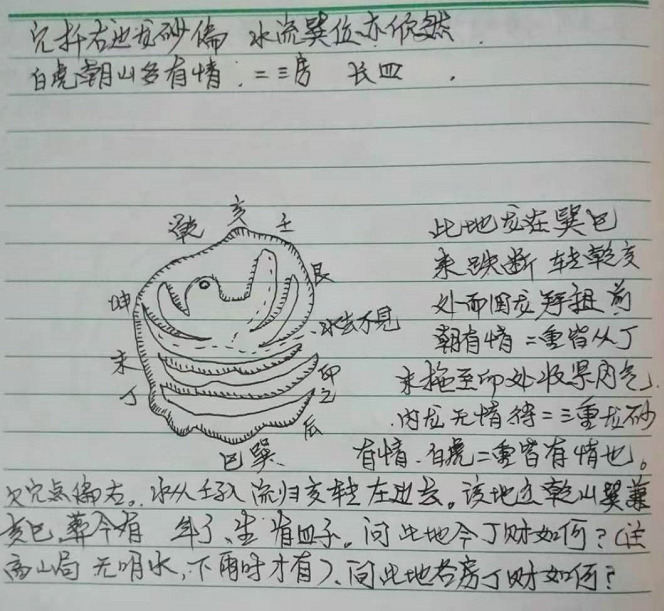 穴扦右边龙砂偏 水流巽位亦依然
白虎朝山多有情. 二三房 长四 .
乾 亥 壬
艮
坤
水去不见
未
卯
丁
乙
辰
巳 巽
此地龙在巽巳
来跌断 转乾亥
处而回龙 祖前
朝有情 二重皆从丁
来拖至卯处收果内气.
内龙无情待二三重龙砂
有情.白虎二重皆有情也。
欠穴点偏右。水从壬 流归亥转左边去。该地立乾山巽兼
亥巳.葬今有 年了、生有四子。问此地今丁财如何?(注
高山局 无明水,下雨时才有)、问此地各房丁财如何?